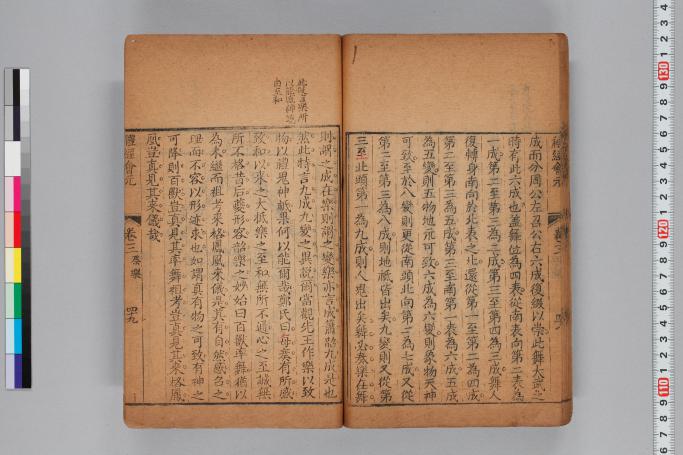 成而分周公左召公右六成復綴以崇此舞大武之
時有此六成也蓋舞位為四表從南表向第二表為
一成第二至第三為二成第三至第四為三成舞人
復轉身南向於北表之北還從第一至第二為四成
第二至第三為五成第三至南第一表為六成五成
為五變則五物地示可致六成為六變則象物天神
可致至於八變則更從南頭北向第二為七成又從
第二至第三為八成則地祇皆出矣九變則又從第
三至北頭第一為九成則人鬼出矣奏樂在舞
則謂之成在樂則謂之變樂亦言成簫韶九成是也
然此特言九成九變之異說爾當觀先王作樂以致
物以禮鬼神祇果何以能爾哉鄭氏曰每奏有所感
致和以來之大抵樂之至和無所不通心之至誠
所不格昔后夔形容韶樂之妙始曰百獸率舞
為未繼而祖考來格鳳凰來儀是其有自然感召之
理而不容以形迹求也如謂真有物之可致有神之
可降則百獸豈真見其率舞祖考豈真見其來格鳳
凰豈真見其來儀哉
禮經會元
卷三
奏樂
四九